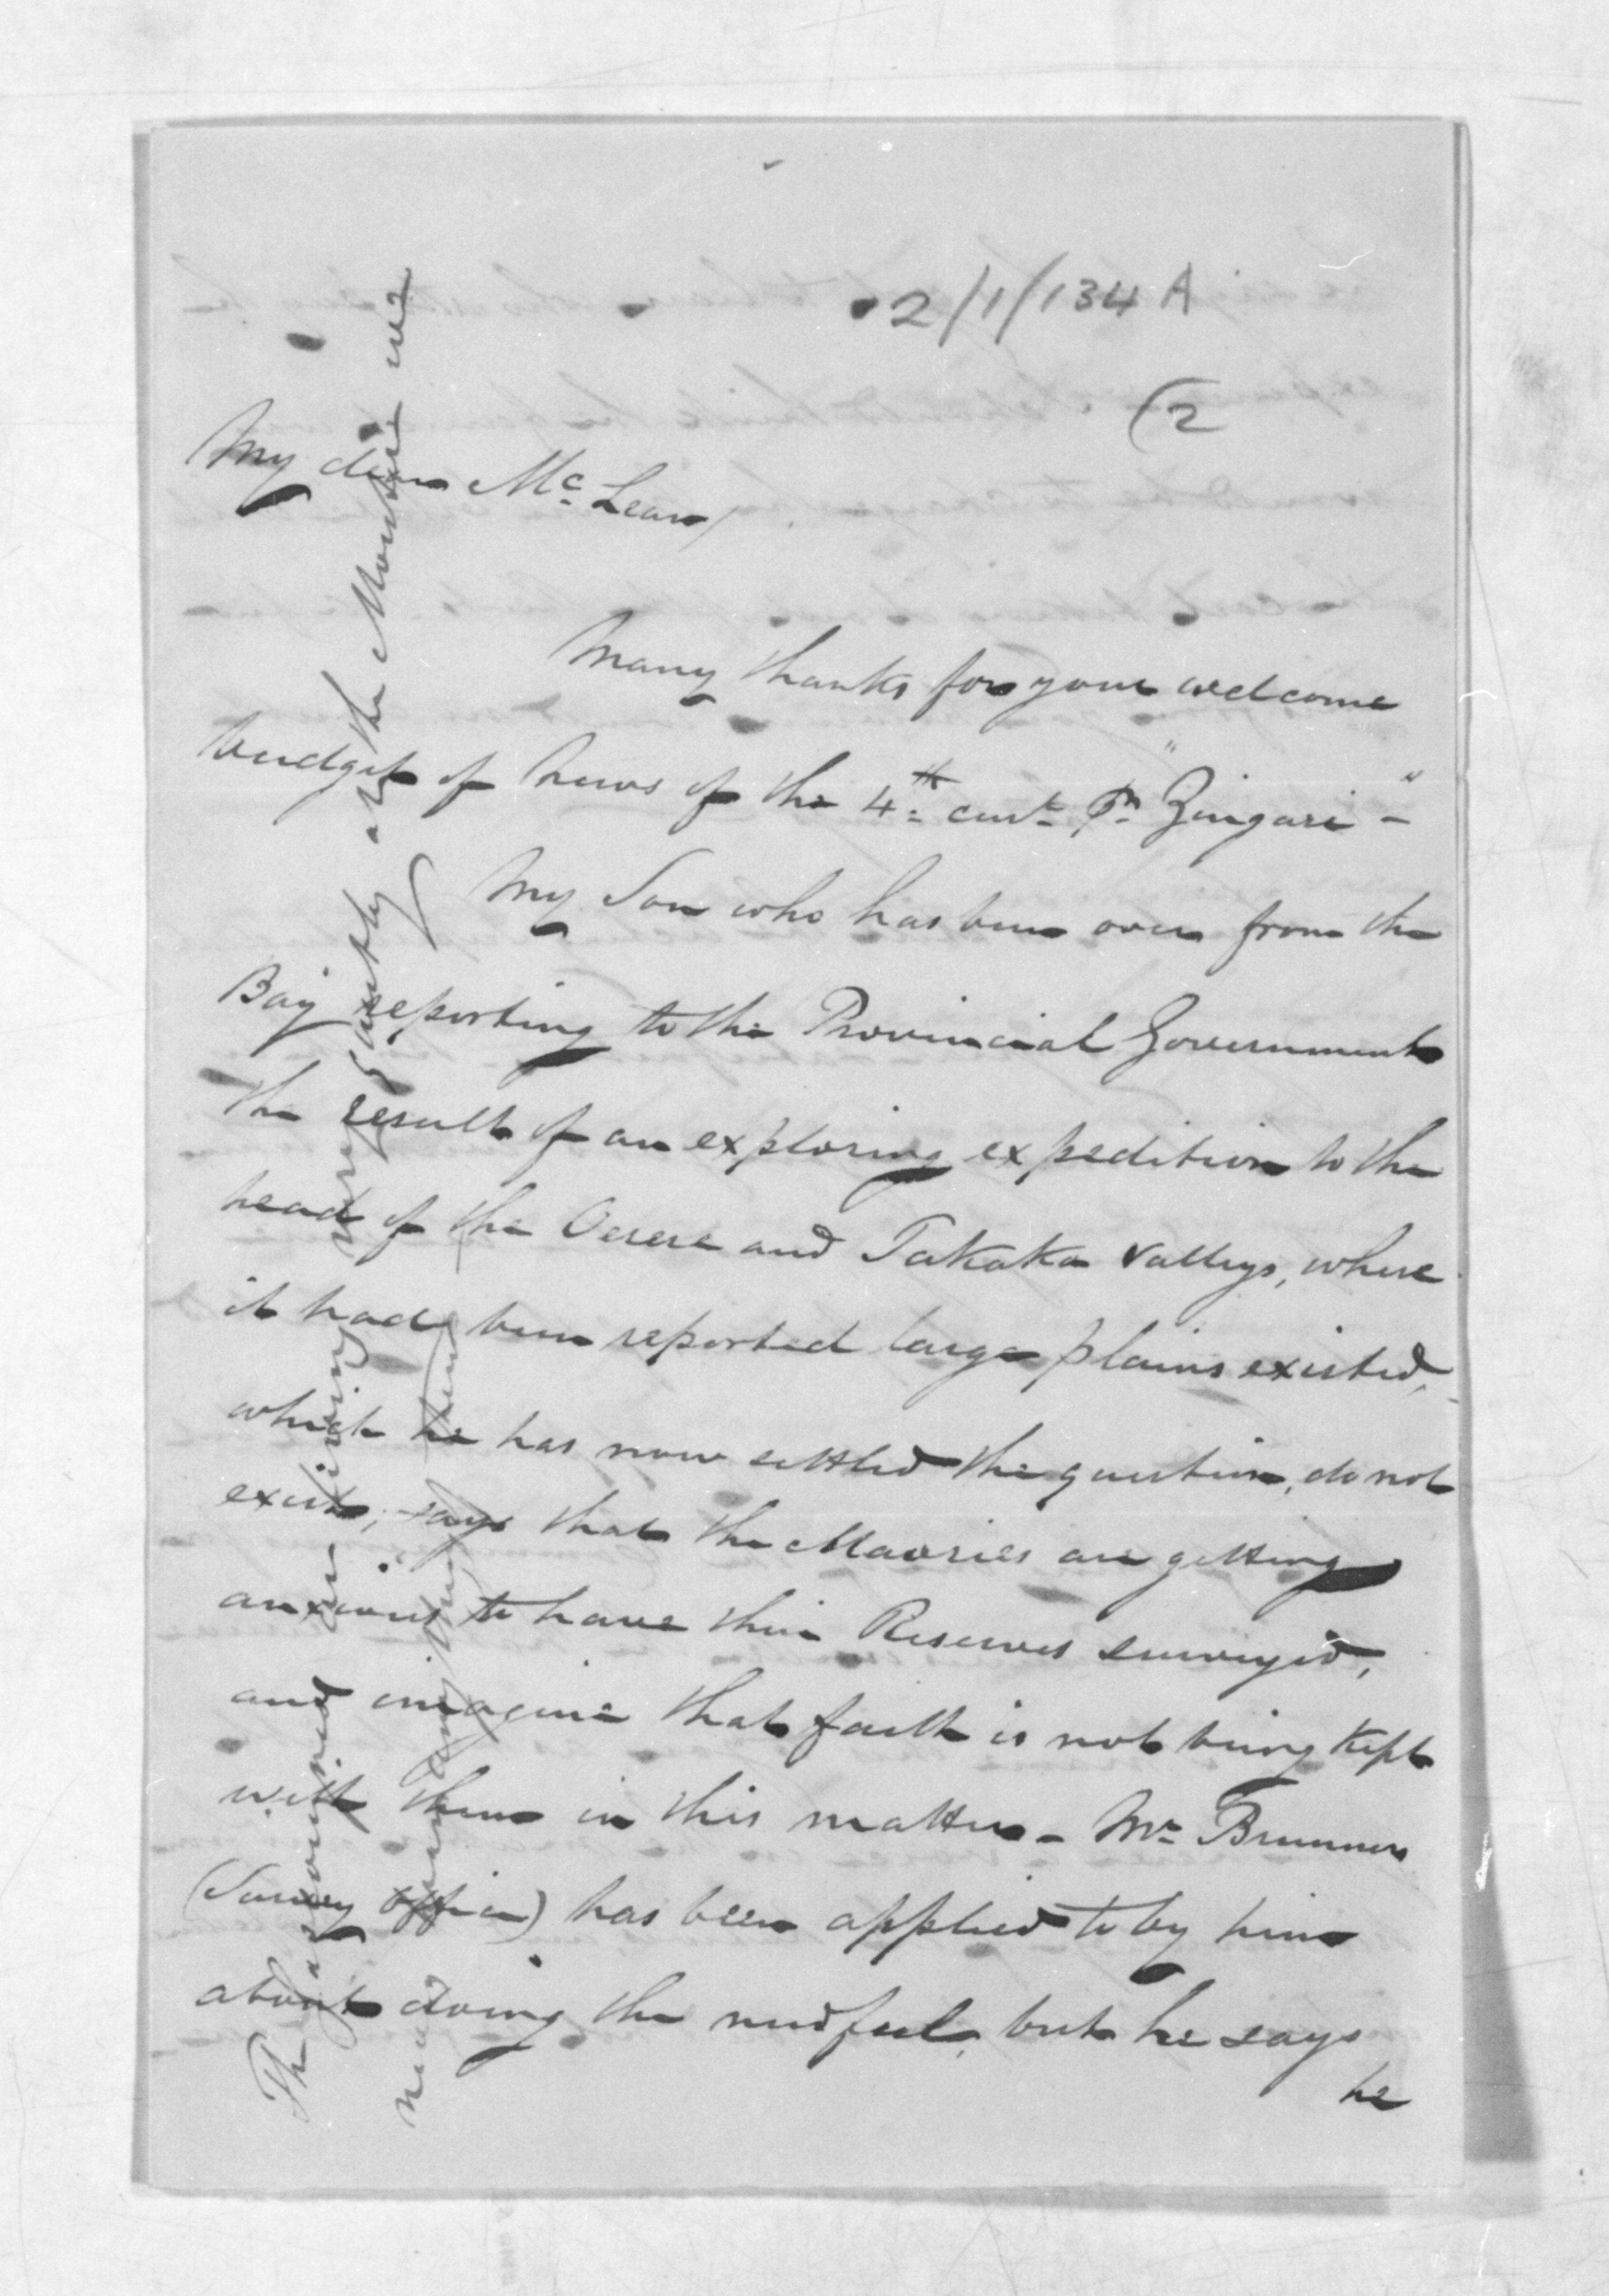 2/1/134 A
(2
My dear McLean,
Many thanks for your welcome
budget of news of the 4th curt. Pr "Zingari" -
My Son who has been over from the
Bay reporting to the Provincial Government
the result of an exploring expedition to the
head of the Oerere and Takaka Valleys, where
it had been reported large plains existed,
which he has now settled the question, do not
exist; says that the Maories are getting
anxious to have their Reserves surveyed,
and imagine that faith is not being kept
with them in this matter - Mr Brunner
(Survey Office) has been applied to by him
about doing the needful, but he says
he
The living
at the Mouture